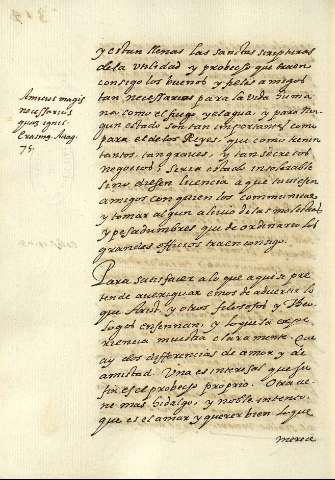 y estan llenas las sanctas scripturas
de la utilidad y probecho que traen
consigo los buenos y fieles amigos
Amicus magis
necessarius
quam ignis
Erasmi. Adag.
75.
tan necessarios para la vida huma
na, como el fuego y el agua, y para nin
gun estado son tan importantes como
para el de los Reyes, que como tienen
tantos, tan graves, y tan secretos
negocios, seria estado insolerable
si no diesen licencia a que tuviesen
amigos con quien los communicar
y tomar algun alivio de las molestias
y pesadumbres que de ordinario los
grandes officios traen consigo.
Para satisfacer a lo que aqui se pre
tende averiguar emos de advertir lo
que Arist. y otros filosofos y Theo
logos enseñan, y lo que la expe
riencia muestra claramente. Que
ay dos differencias de amor y de
amistad. Una es interesal que su
fin es el probecho proprio. Otra ay
mas hidalga, y noble intento,
que es el amar y querer bien lo que
merece